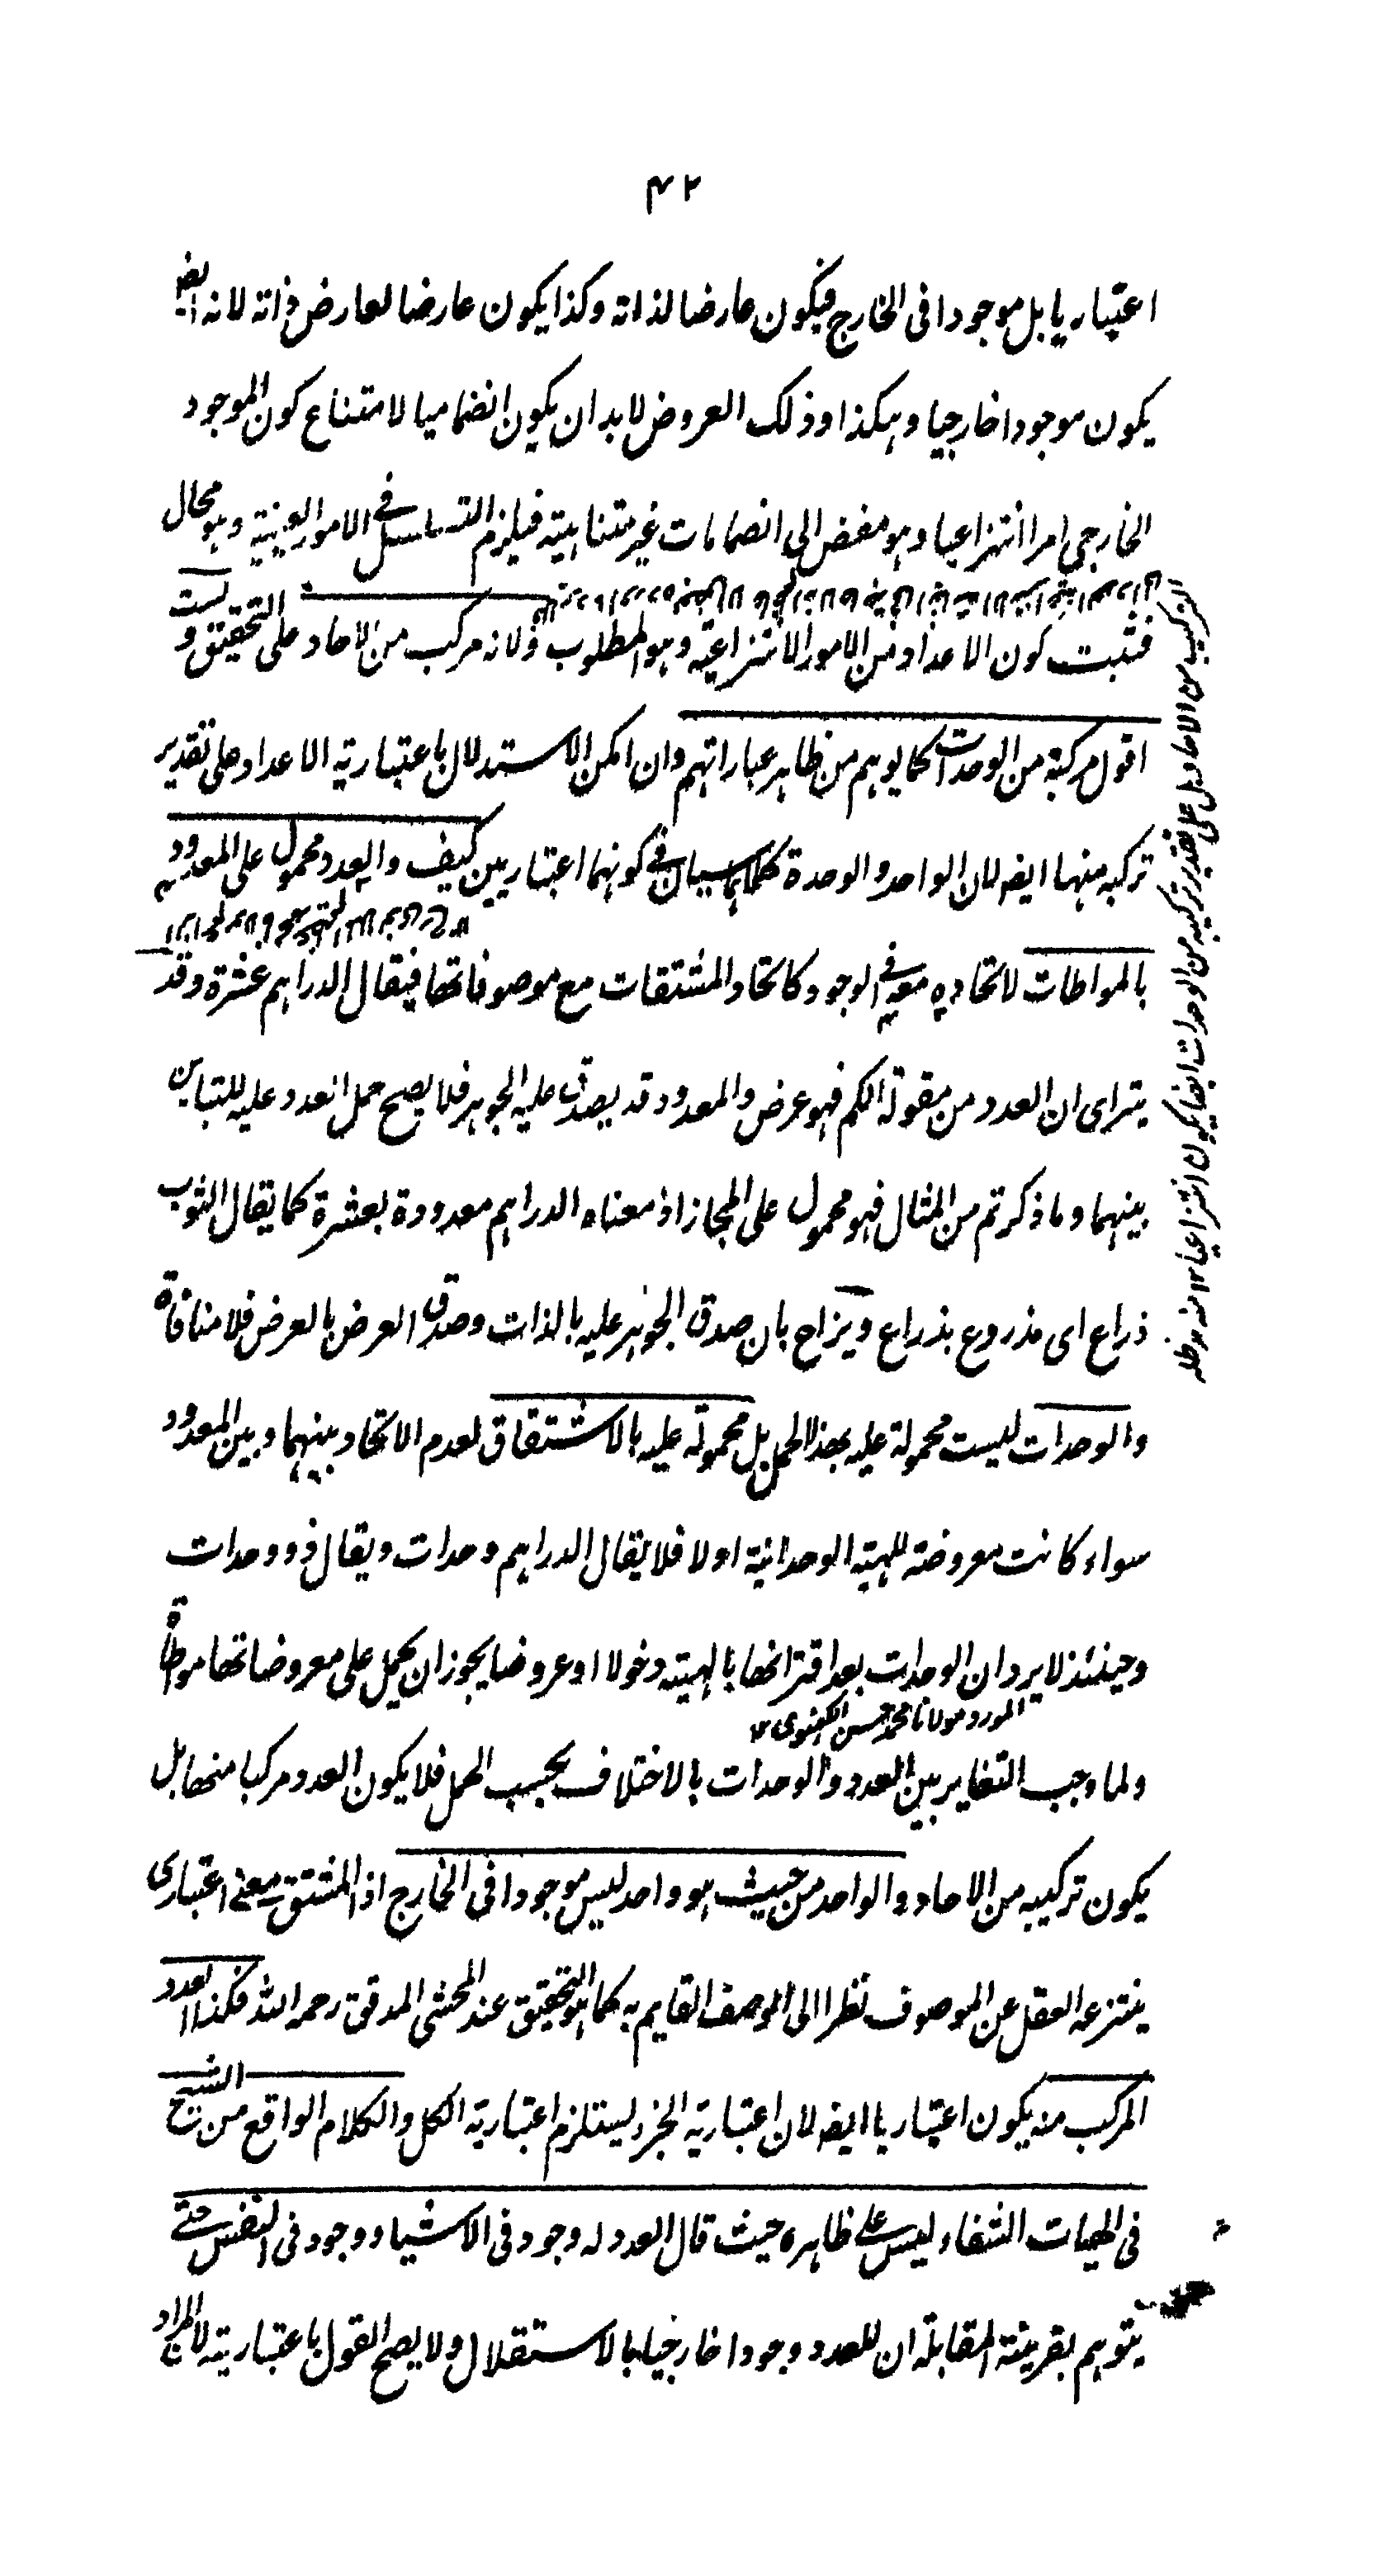 ۴۲
اعتباريا بل موجودا في الخارج فيكون عارضا لذاته وكذا يكون عارضا لعارض ذاته لانه ايضه
يكون موجودا خارجيا وهكذا وذلك العروض لا بد ان يكون انضماميا لامتناع كون الموجود
الخارجي امرا انتزاعيا وهو مفض الى انضمامات غير متناهية فيلزم التسلسل في الامور العينية وهو محال
فثبت كون الاعداد من الامور الانتزاعية وهو المطلوب ولانه مركب من الاحاد على التحقيق وليست
اقول مركبة من الوحدات كما يوهم من ظاهر عباراتهم وان امكن الاستدلال باعتبارية الاعداد على تقدير
تركبه منها ايضه لان الواحد والوحدة كلاهما سيان في كونهما اعتباريين كيف والعدد محمول على المعدود
بالمواطات لاتحاده معه في الوجود كاتحاد المشتقات مع موصوفاتها فيقال الدراهم عشرة وقد
يتراى ان العدد من مقولة الكم فهو عرض والمعدود قد يصدق عليه الجوهر فلا يصح حمل العدد عليه للتباين
بينهما وما ذكرتم من المثال فهو محمول على المجاز اذ معناه الدراهم معدودة بعشرة كما يقال الثوب
ذراع اى مذروع بذراع ويزاح بان صدق الجوهر عليه بالذات وصدق العرض بالعرض فلا منافاة
والوحدات ليست محمولة عليه بهذا الحمل بل محمولة عليه بالاشتقاق لعدم الاتحاد بينهما وبين المعدود
سواء كانت معروضة للهيئة الوحدانية اولا فلا يقال الدراهم وحدات ويقال ذو وحدات
وحينئذ لا يرد ان الوحدات بعد اقترانها بالهيئة دخولا او عروضا يجوز ان يحمل على معروضاتها مواطاة
المورد مولانا محمد حسن اللكهنوى ۱۲
ولما وجب التغاير بين العدد والوحدات بالاختلاف بحسب الحمل فلا يكون العدد مركبا منها بل
يكون تركيبه من الاحاد والواحد من حيث هو واحد ليس موجودا في الخارج اذ المشتق معنى اعتبارى
ينتزعه العقل عن الموصوف نظرا الى الوصف القايم به كما هو التحقيق عند المحشى المدقق رحمه الله فكذا العدد
المركب منه يكون اعتباريا ايضه لان اعتبارية الجزء يستلزم اعتبارية الكل والكلام الواقع من الشيخ
في الهيات الشفاء ليس على ظاهره حيث قال العدد له وجود في الاشياء ووجود في النفس حتى
يتوهم بقرينة المقابلة ان للعدد وجودا خارجيا بالاستقلال ولا يصح القول باعتباريته لان المراد
التركيب من الاحاد بل على تقدير تركيبه من الوحدات ايضا يكون انتزاعيا ۱۲ منه مدظله